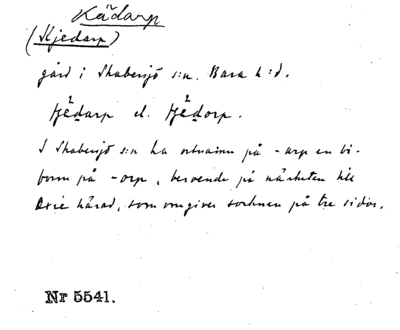 Kädarp
(Kjedarp)
gård i Skabersjö s:n. Bara h:d.
el.
I Skabersjö s:n ha ortnamn på -arp en bi-
form på -orp, beroende på närheten till
Oxie härad, som omgiver socknen på tre sidor.
Nr 5541.